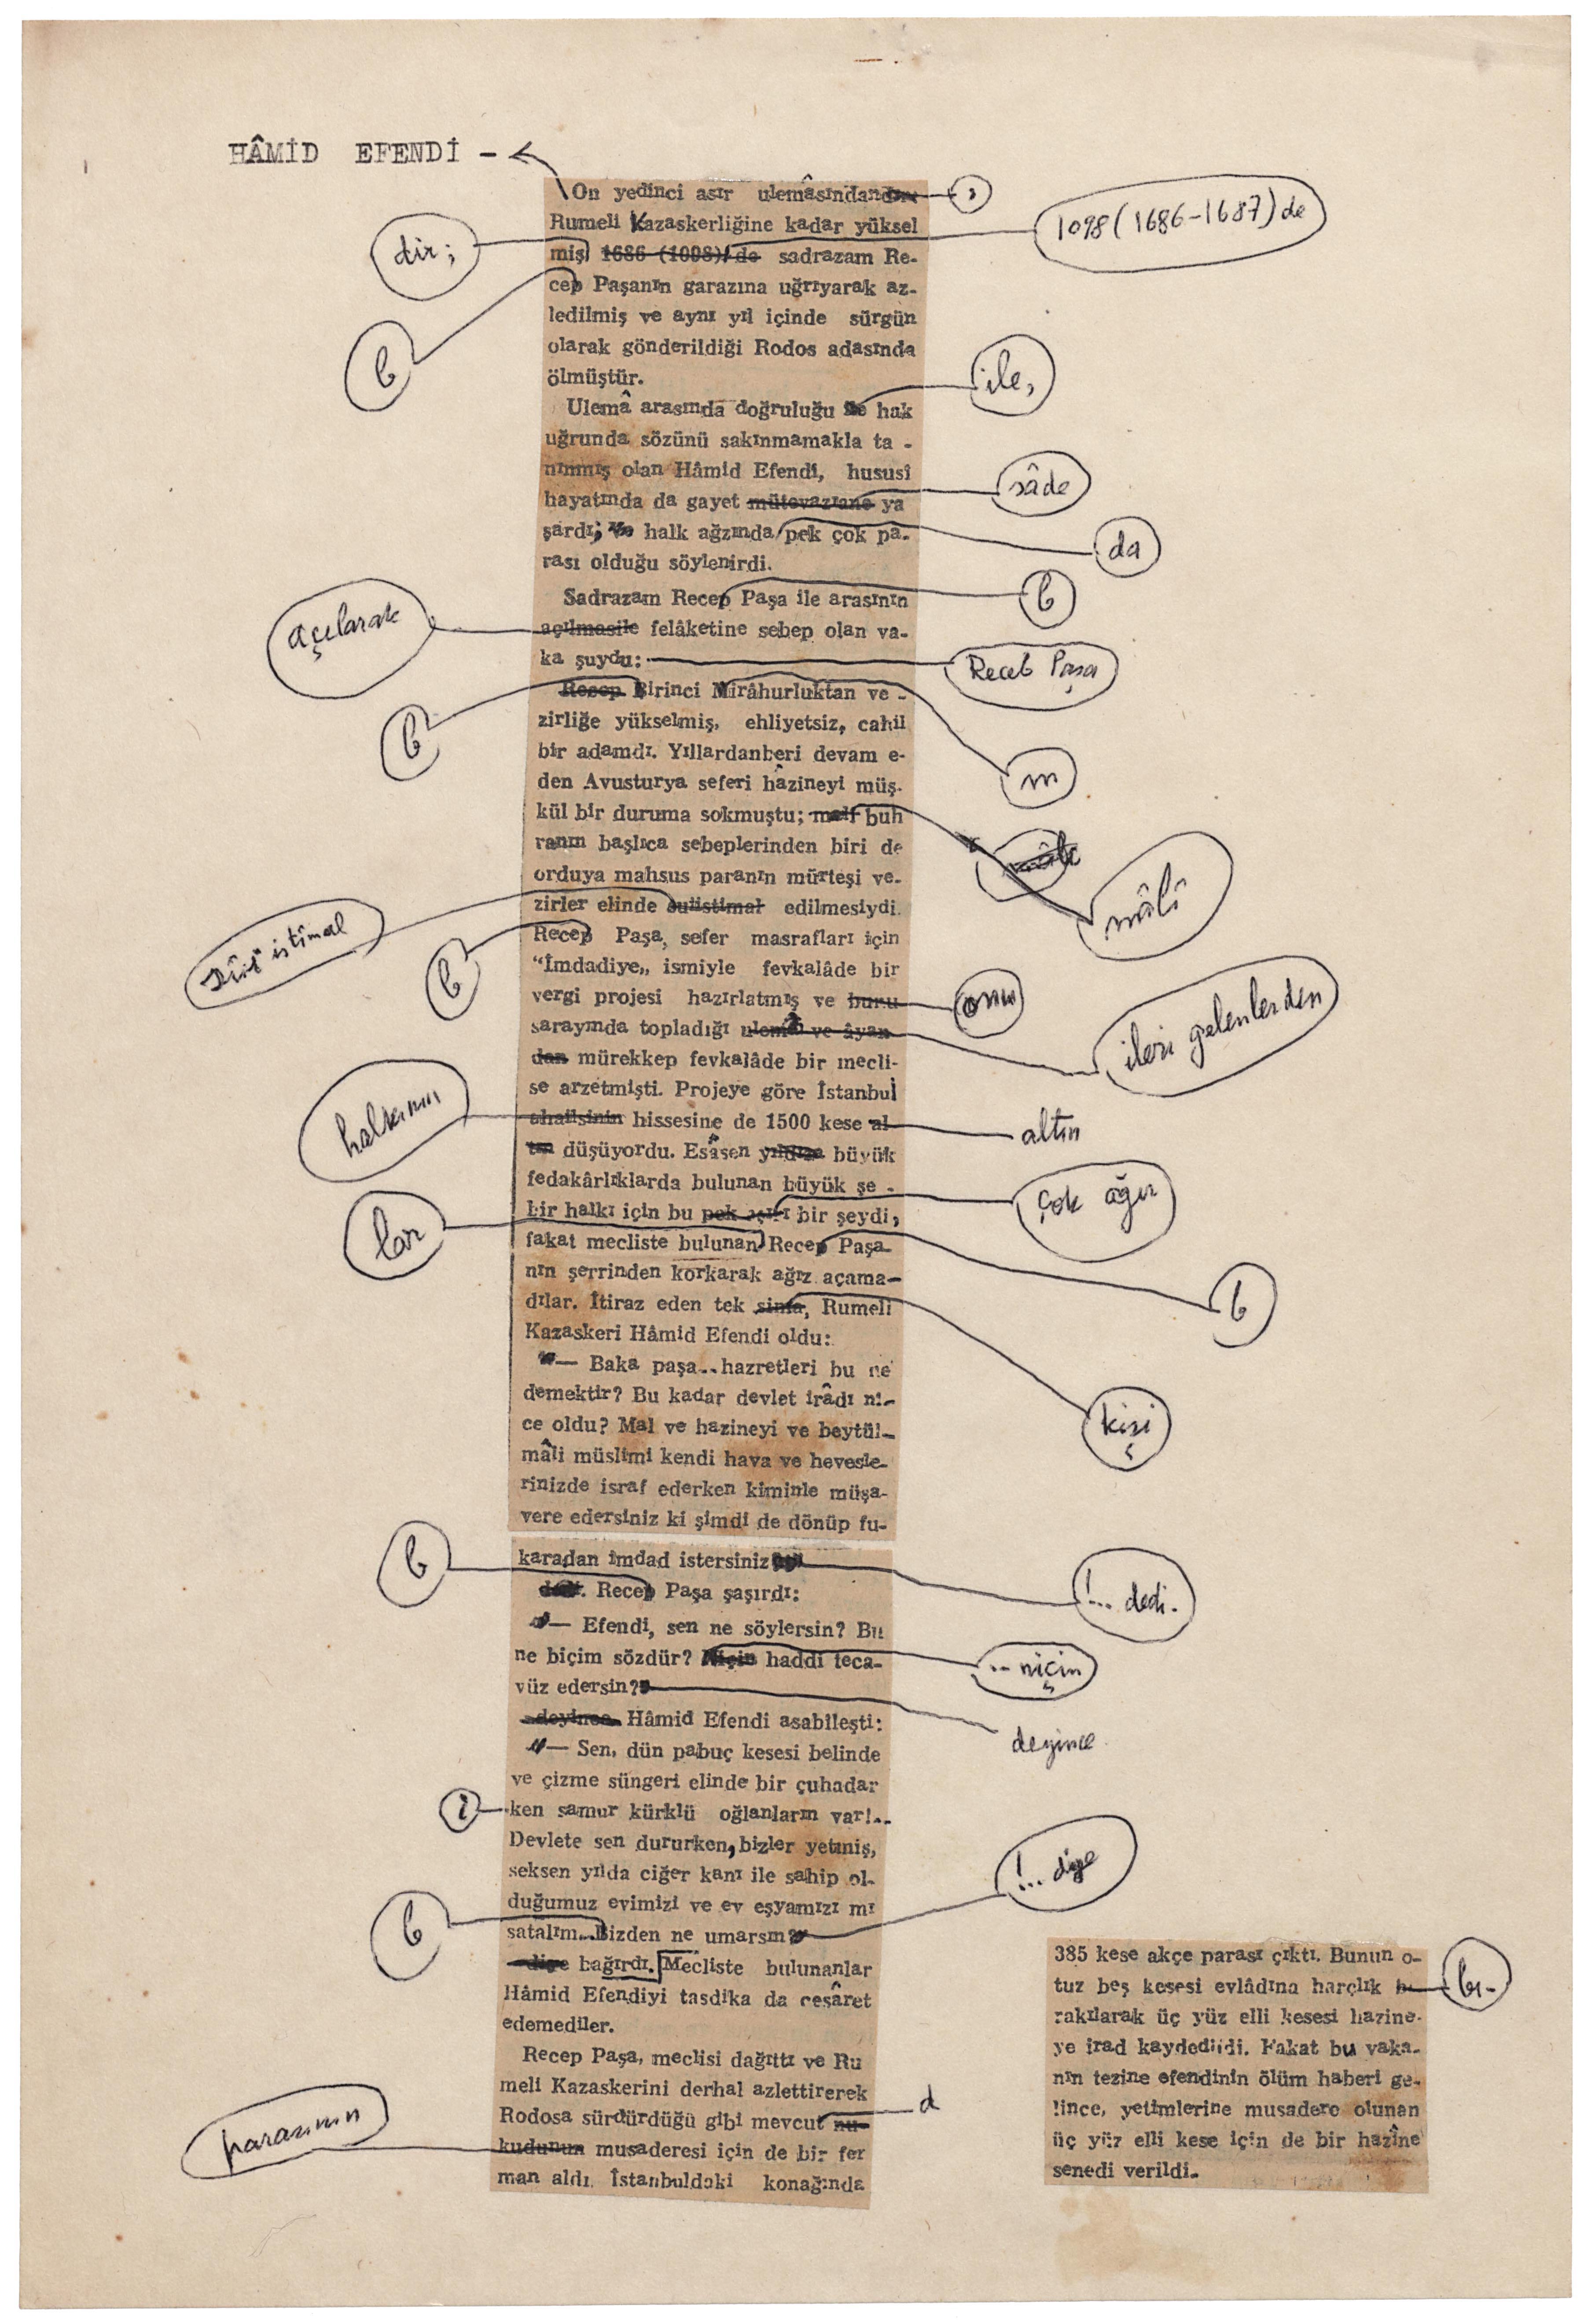 HÂMİD EFENDİ -
On yedinci asır ulemâsındandır
Rumeli Kazaskerliğine kadar yüksel
miş 1686 (1098) de sadrazam Re-
cep Paşanın garazına uğrıyarak az-
ledilmiş ve aynı yıl içinde sürgün
olarak gönderildiği Rodos adasında
ölmüştür.
Ulemâ arasında doğruluğu ile hak
uğrunda sözünü sakınmamakla ta -
nınmış olan Hâmid Efendi, hususî
hayatında da gayet mütevazıane ya
şardı; ve halk ağzında pek çok pa-
rası olduğu söylenirdi.
Sadrazam Recep Paşa ile arasının
açılmasile felâketine sebep olan va-
ka şuydu:
Recep Birinci Mirâhurluktan ve -
zirliğe yükselmiş, ehliyetsiz, cahil
bir adamdı. Yıllardanberi devam e-
den Avusturya seferi hâzineyi müş-
kül bir duruma sokmuştu; malî buh
ranın başlıca sebeplerinden biri de
orduya mahsus paranın mürteşi ve-
zirler elinde suiistimal edilmesiydi.
Recep Paşa, sefer masrafları için
“İmdadiye„ ismiyle fevkalâde bir
vergi projesi hazırlatmış ve bunu
sarayında topladığı ulemâ ve âyan
dan mürekkep fevkalâde bir mecli-
se arzetmişti. Projeye göre İstanbul
ahalisinin hissesine de 1500 kese al-
tın düşüyordu. Esâsen yıllarca büyük
fedakârlıklarda bulunan büyük şe -
hir halkı için bu pek aşırı bir şeydi,
fakat mecliste bulunan Recep Paşa-
nın şerrinden korkarak ağız açama-
dılar. İtiraz eden tek sima, Rumeli
Kazaskeri Hâmid Efendi oldu:
"— Baka paşa.. hazretleri bu ne
demektir? Bu kadar devlet irâdı ni-
ce oldu? Mal ve hazineyi ve beytül-
mâli müslimi kendi hava ve hevesle-
rinizde israf ederken kiminle müşa-
vere edersiniz ki şimdi de dönüp fu-
karadan imdad istersiniz
dedi. Recep Paşa şaşırdı:
"— Efendi, sen ne söylersin? Bu
ne biçim sözdür? Niçin haddi teca-
vüz edersin?
deyince Hâmid Efendi asabileşti:
"— Sen, dün pabuç kesesi belinde
ve çizme süngeri elinde bir çuhadar
ken samur kürklü oğlanların var!..
Devlete sen dururken, bizler yetmiş,
seksen yılda ciğer kanı ile sahip ol-
duğumuz evimizi ve ev eşyamızı mı
satalım...Bizden ne umarsın?
diye bağırdı. Mecliste bulunanlar
Hâmid Efendiyi tasdika da cesâret
edemediler.
Recep Paşa, meclisi dağıttı ve Ru
meli Kazaskerini derhal azlettirerek
Rodosa sürdürdüğü gibi mevcut nu-
kudunun musaderesi için de bir fer
man aldı. İstanbuldaki konağında
385 kese akçe parası çıktı. Bunun o-
tuz beş kesesi evlâdına harçlık bı
rakılarak üç yüz elli kesesi hazine-
ye irad kaydedildi. Fakat bu vaka-
nın tezine efendinin ölüm haberi ge-
lince, yetimlerine musadere olunan
üç yüz elli kese için de bir hazîne
senedi verildi.
dir;
b
açılarak
b
sûi istîmal
b
halkının
lar
b
i
b
paranının
1098 (1686-1687) de
ile,
sâde
da
b
Receb Paşa
m
mâlî
onu
ileri gelenlerden
altın
çok ağır
b
kişi
!... dedi.
.. niçin
deyince
!... diye
d
bı-